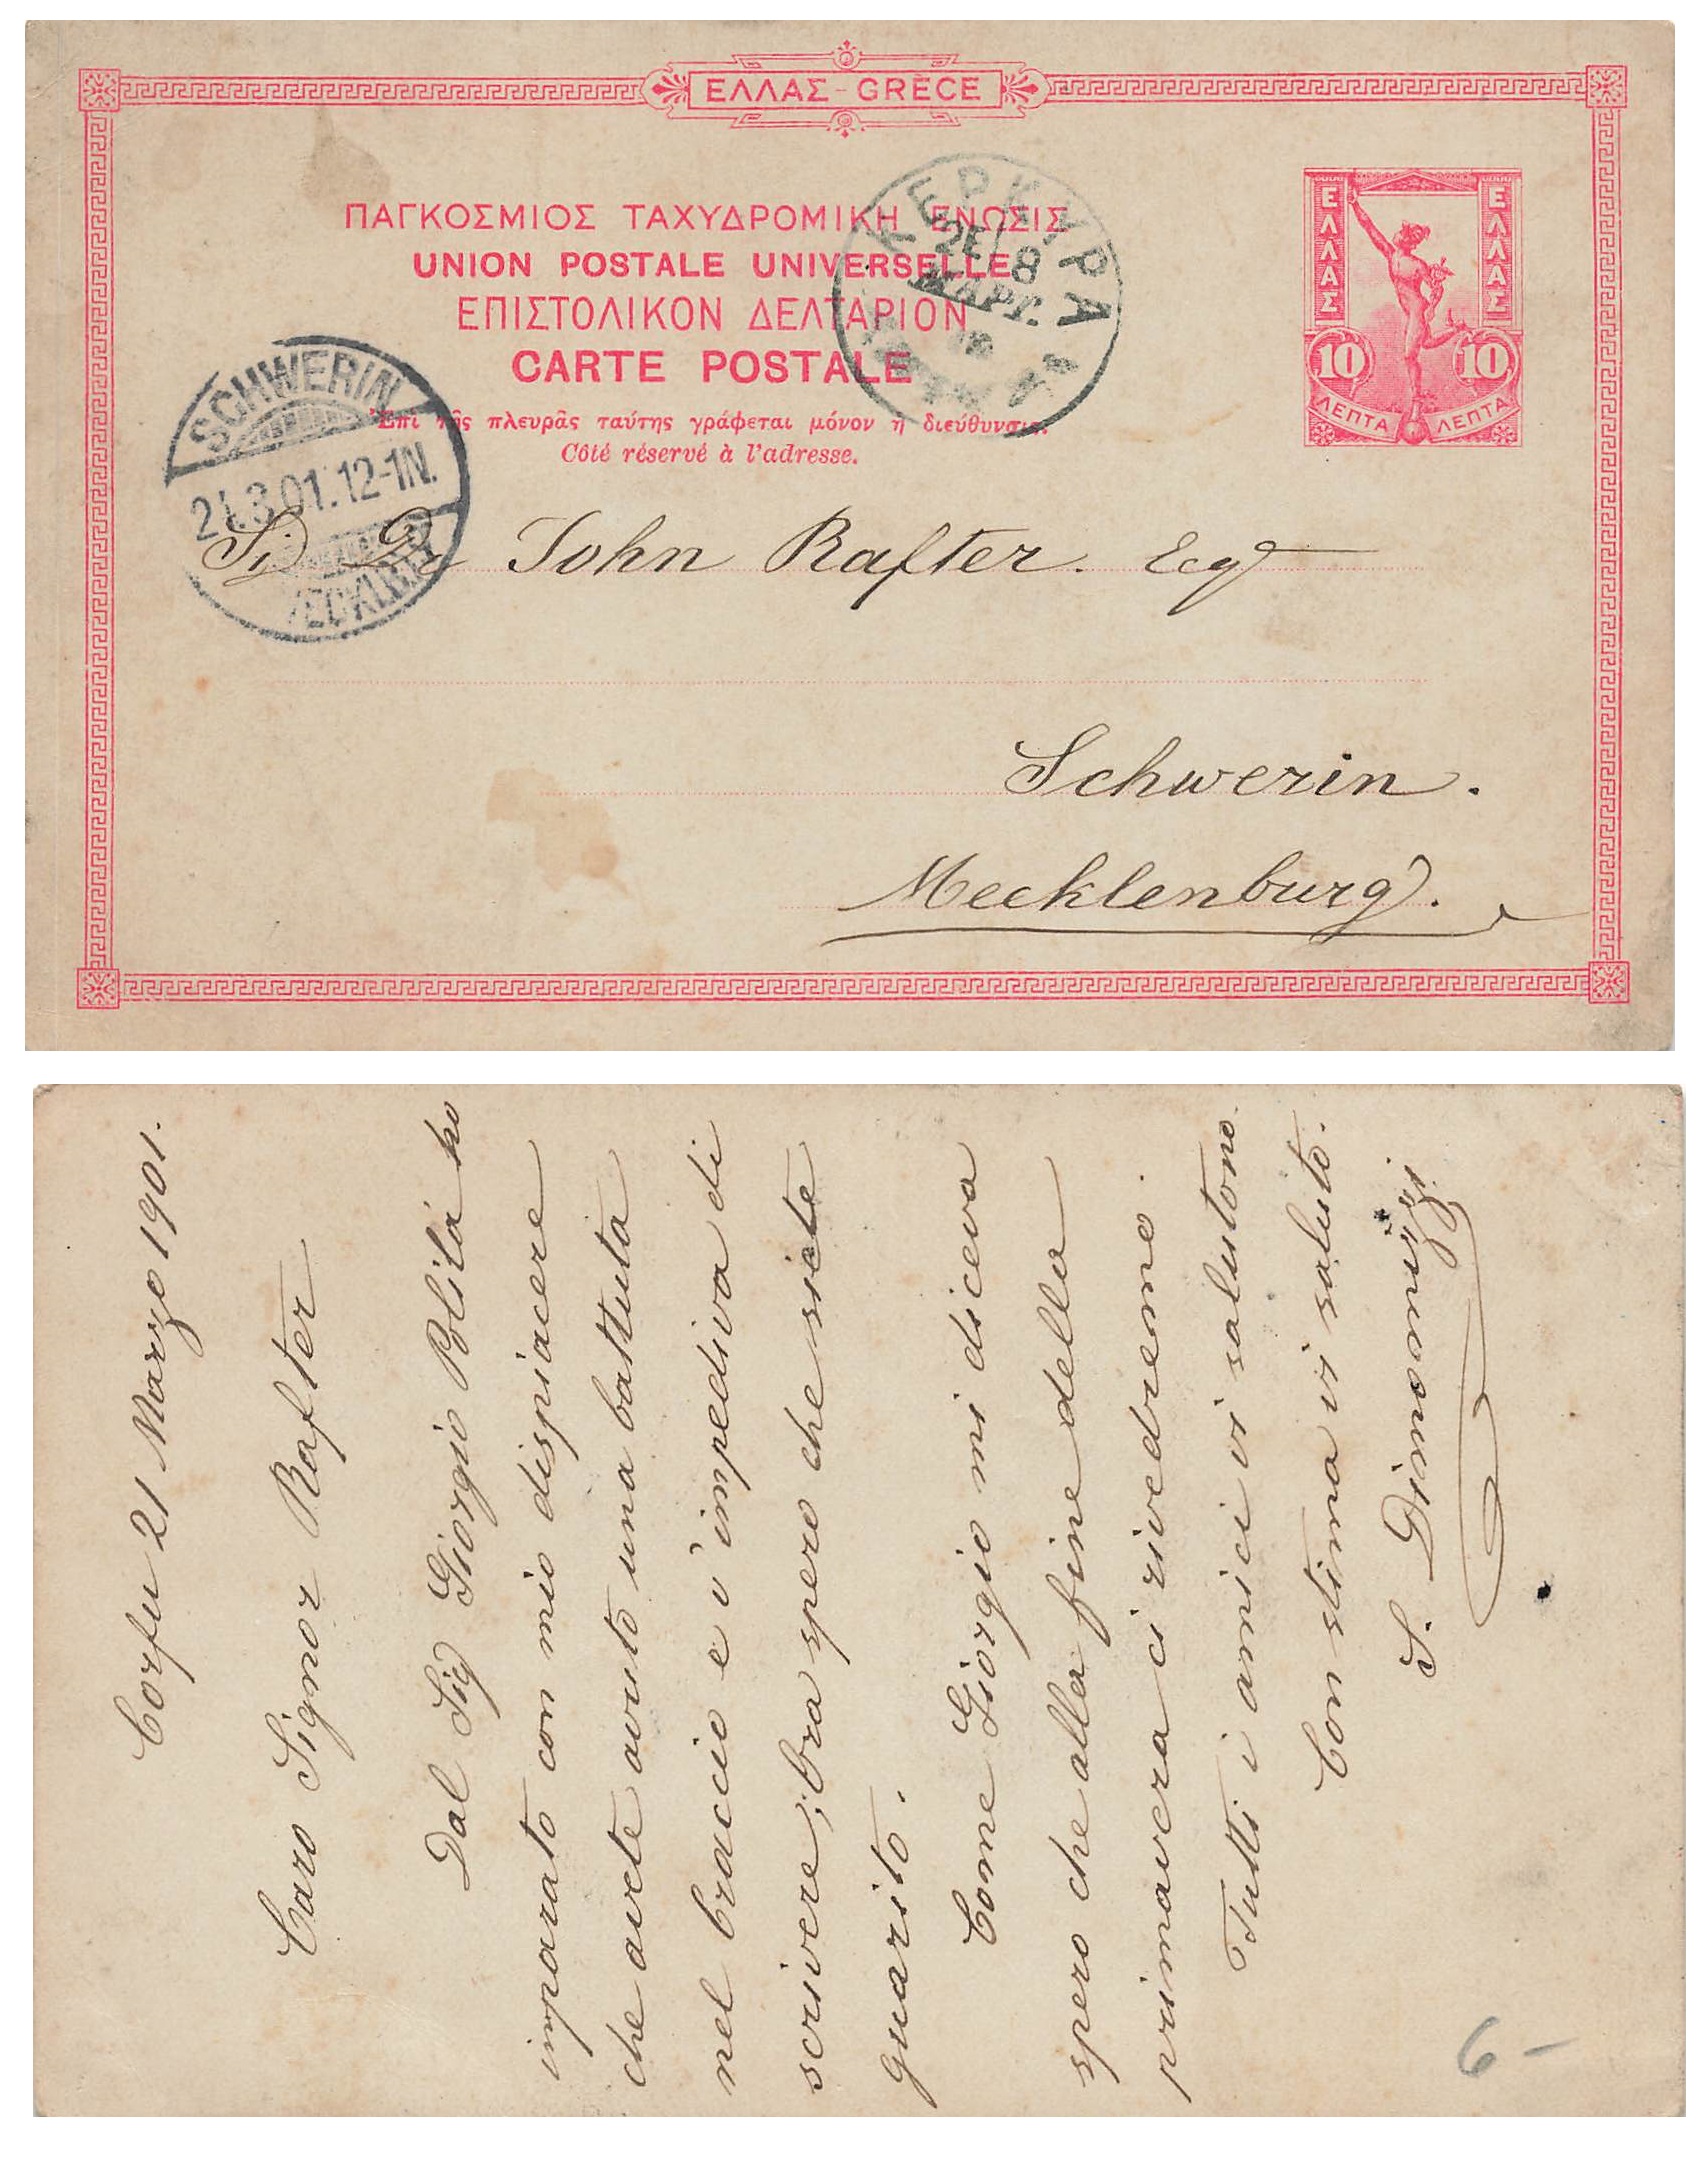 ΕΛΛΑΣ - GRÈCE
ΠΑΓΚΟΣΜΙΟΣ ΤΑΧΥΔΡΟΜΙΚΗ ΕΝΩΣΙΣ
UNION POSTALE UNIVERSELLE
ΕΠΙΣΤΟΛΙΚΟΝ ΔΕΛΤΑΡΙΟΝ
CARTE POSTALE
Ἐπὶ τῆς πλευρᾶς ταύτης γράφεται μόνον ἡ διεύθυνσις.
Côté réservé à l'adresse.
ΕΛΛΑΣ
ΕΛΛΑΣ
10 10
ΛΕΠΤΑ ΛΕΠΤΑ
ΚΕΡΚΥΡΑ
8
ΜΑΡΤ.
SCHWERIN
3.01.12-1N.
John Rafter. Esq
Schwerin.
Mecklenburg.
Corfu 21 Marzo 1901.
Caro Signor Rafter
Dal Sig Giorgio Polità ho
imparato con mio dispiacere
che avete avuto una battuta
nel braccio e v'impediva di
scrivere; ora spero che siete
guarito.
Come Giorgio mi diceva
spero che alla fine della
primavera ci rivedremo.
Tutti i amici vi salutono
Con stima vi saluto.
6-